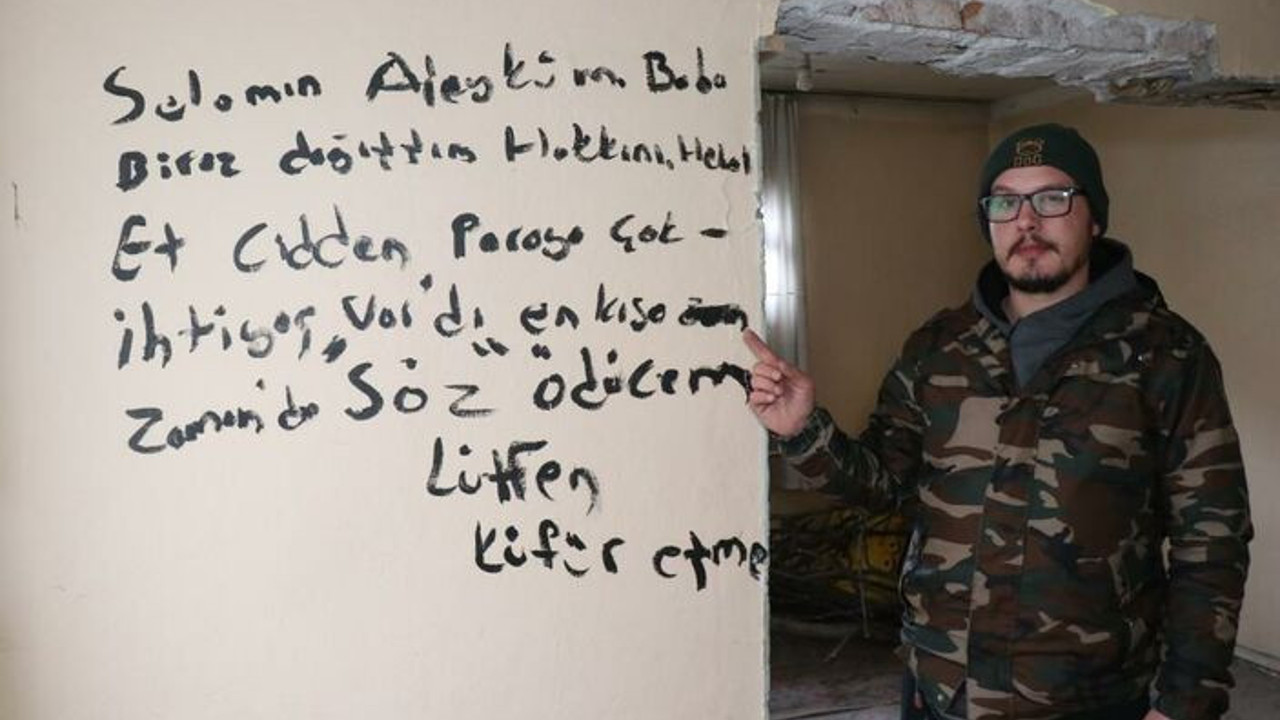 Selamın Aleyküm Baba
Biraz dağıttım Hakkını, Helal
Et Cidden Paraya Çok -
ihtiyaç, Var'dı en kısa
Zaman'da "Söz" ödücem
Lütfen
Küfür etme